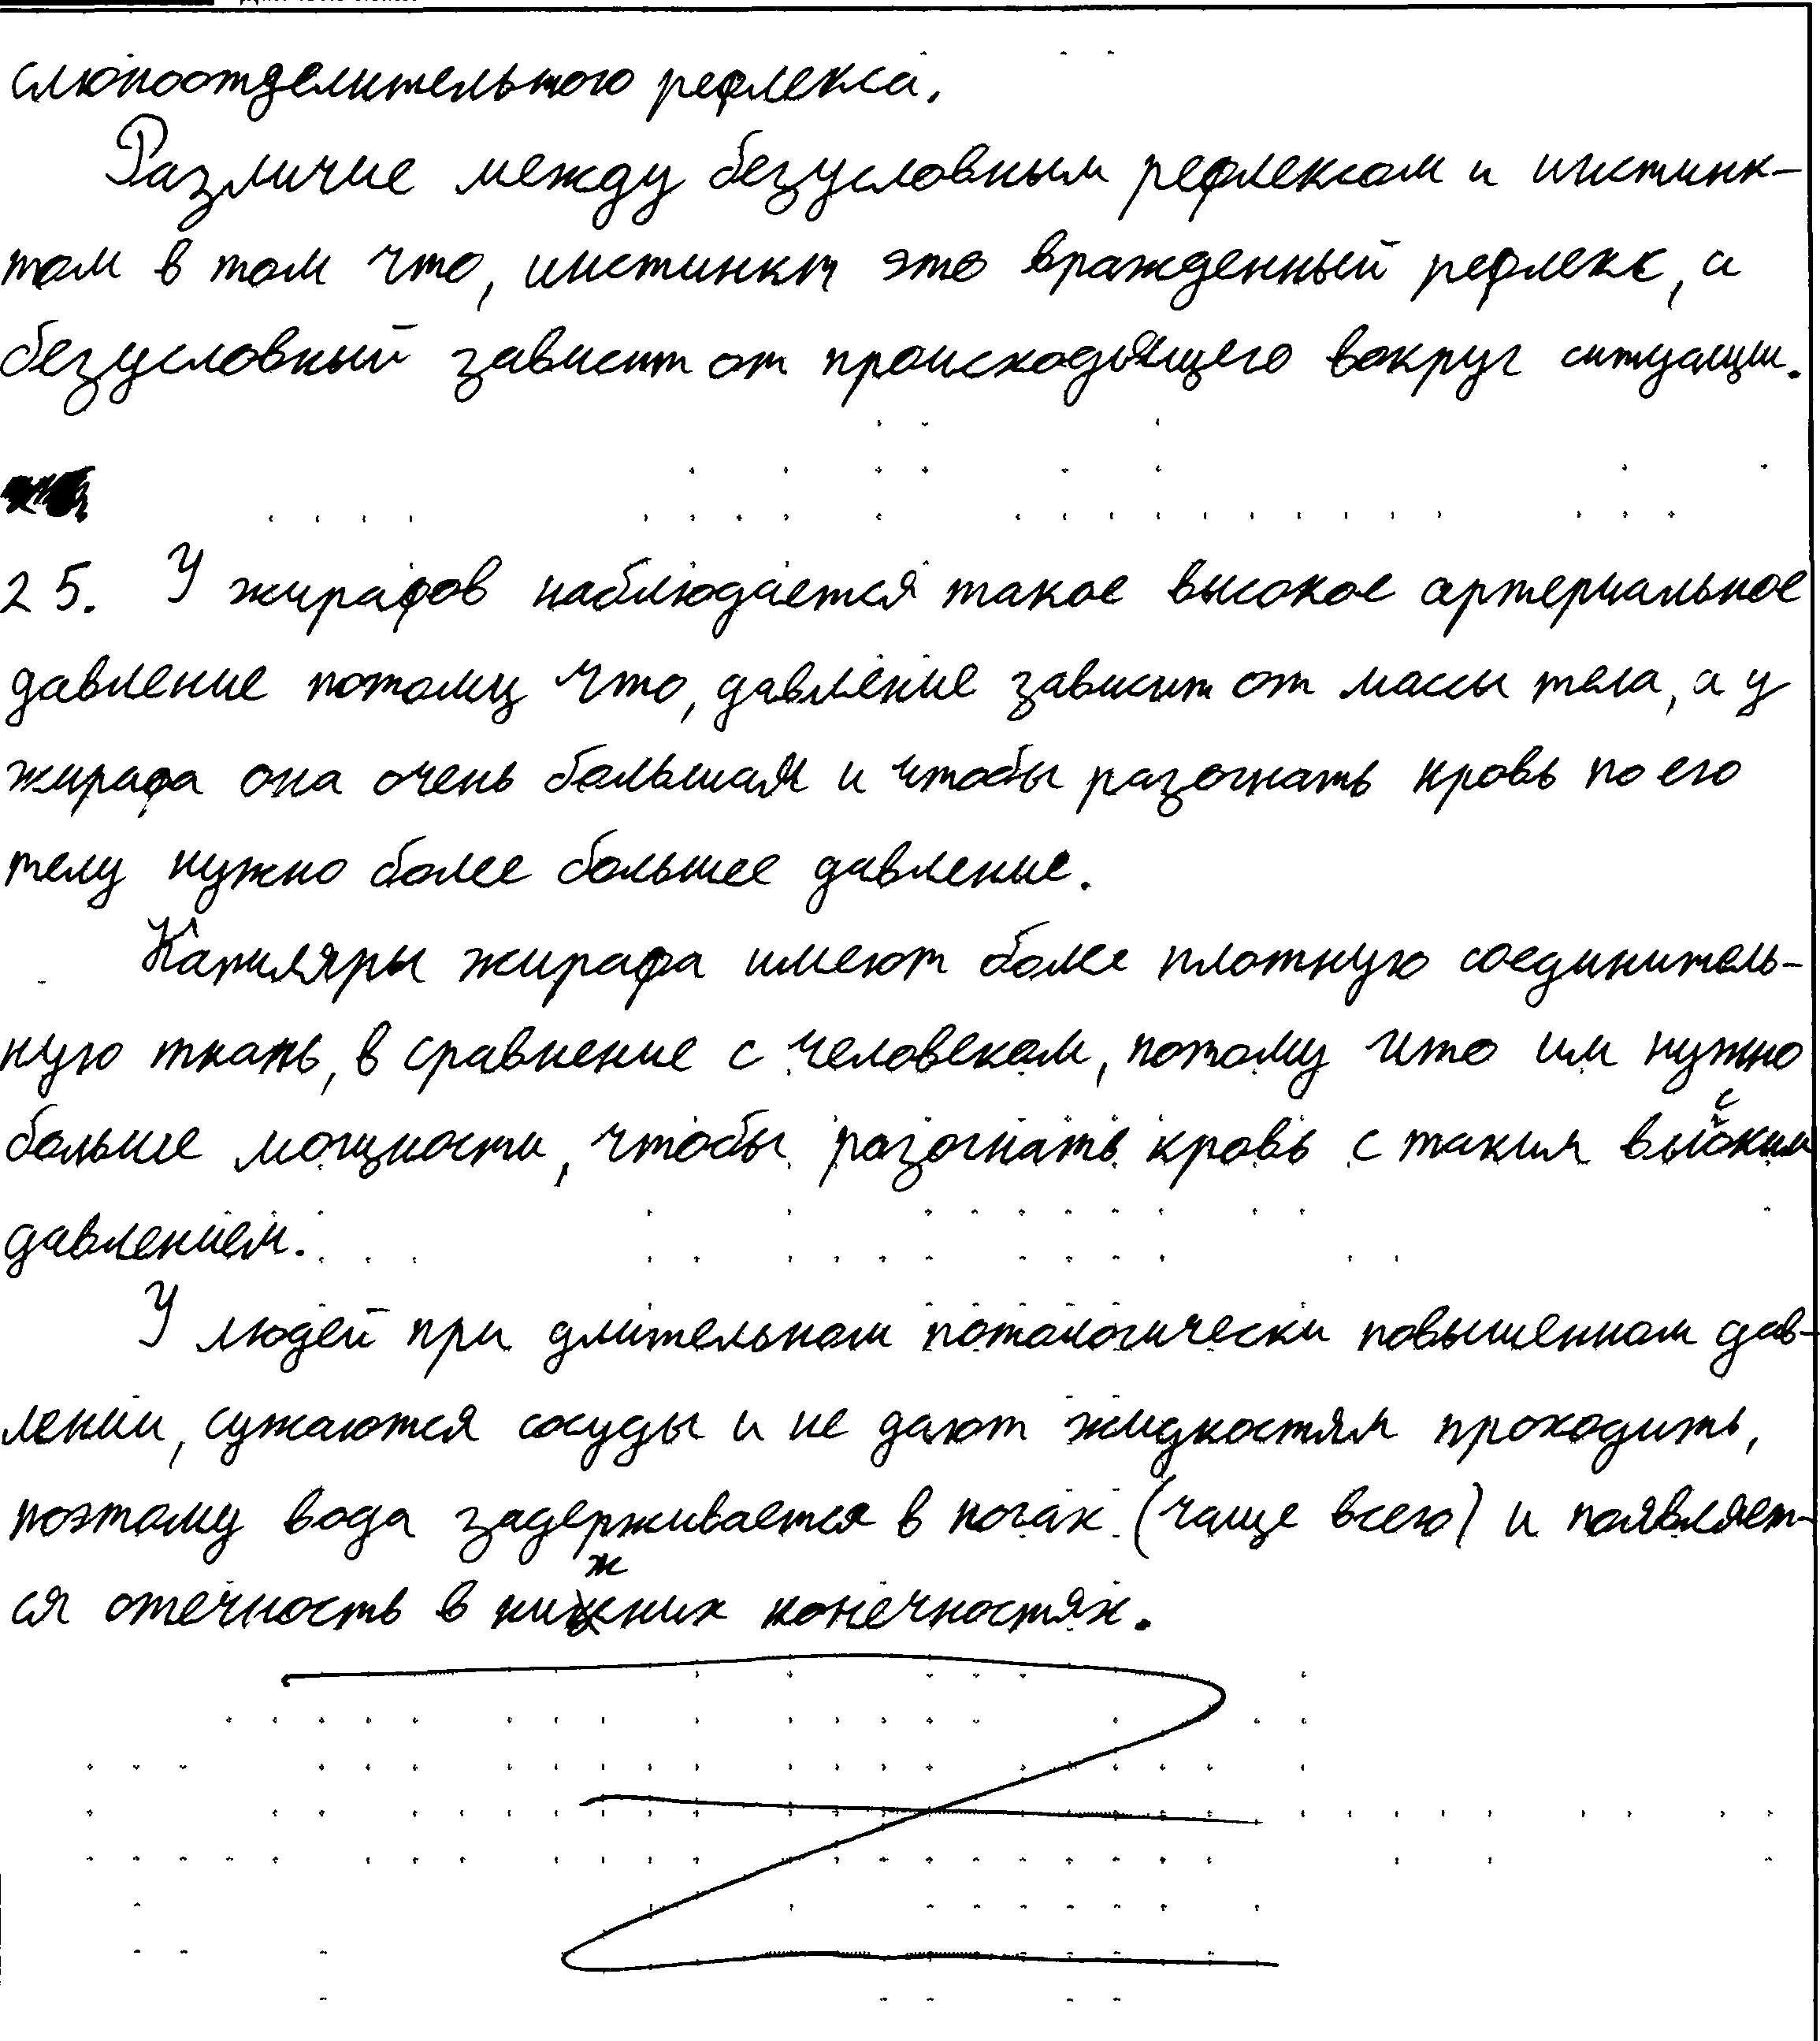 слюноотделительного рефлекса.
Различие между безусловным рефлексом и инстинк-
том в том что, инстинкт это вражденный рефлекс, а
безусловный зависит от происходящего вокруг ситуации.
25. У жирафов наблюдается такое высокое артериальное
давление потому что, давление зависит от массы тела, а у
жирафа она очень большая и чтобы разогнать кровь по его
телу нужно более большее давление.
Капиляры жирафа имеют более плотную соединитель-
ную ткань, в сравнение с человеком, потому что им нужно
больше мощности, чтобы разогнать кровь с таким высоким
давлением.
У людей при длительном потологически повышенном дав-
лении, сужаются сосуды и не дают жидкостям проходить,
поэтому вода задерживается в ногах (чаще всего) и появляет-
ся отечность в нижних конечностях.